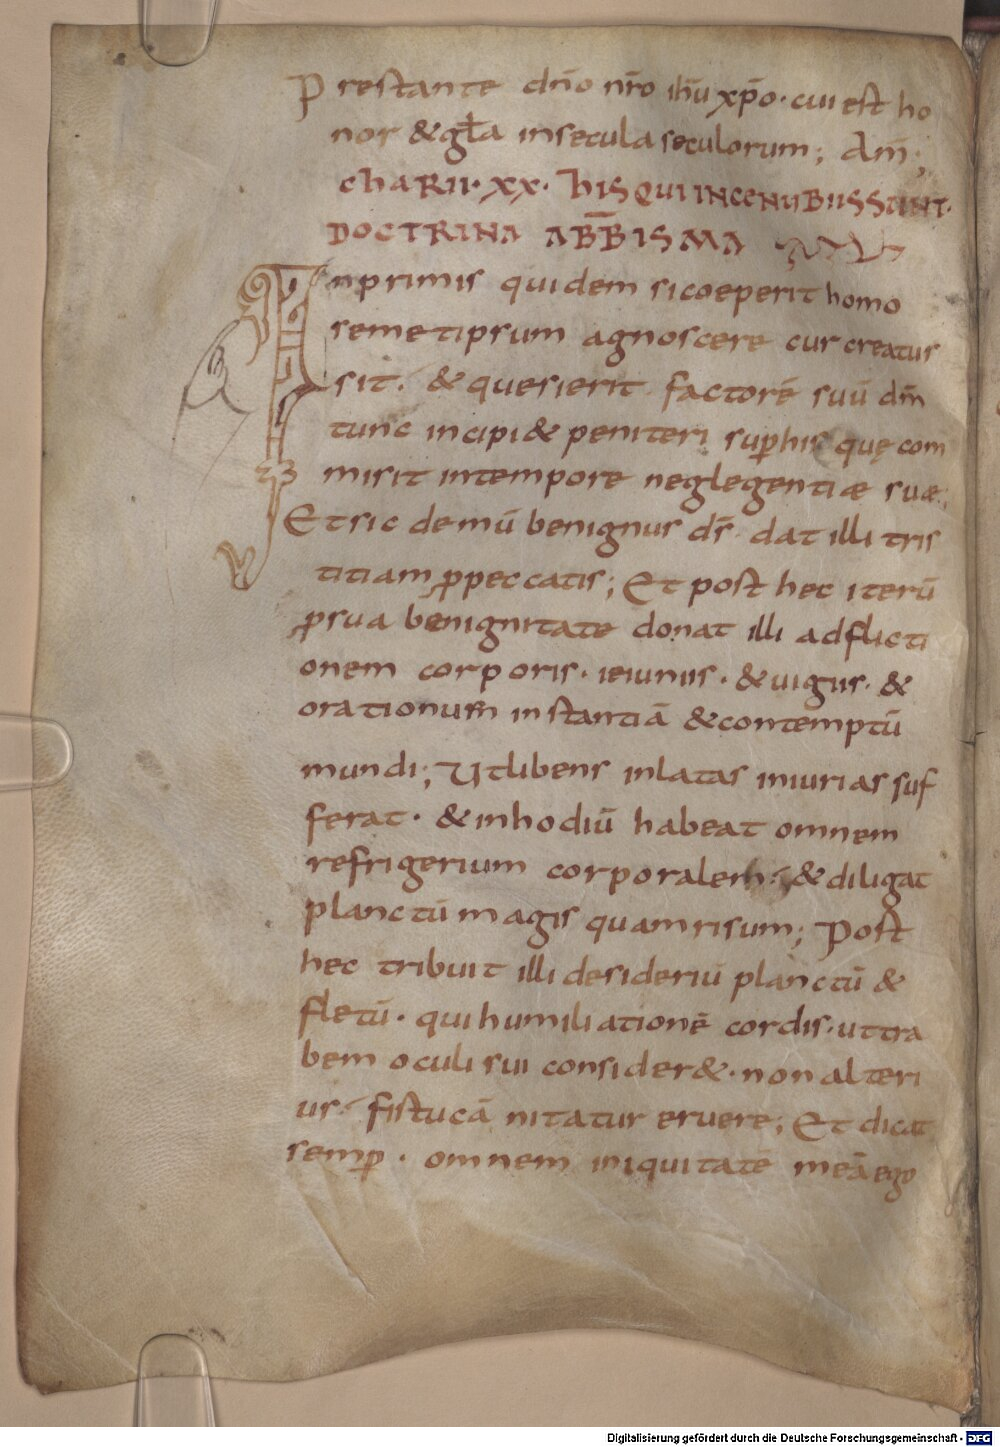 Prestante dn̄o nr̄o ihū xp̄o · cui est ho
nor & gl̄a in secula seculorum; Am̄;
DOCTRINA ABB̄IS MA
Inprimis quidem si coeperit homo
semetipsum agnoscere cur creatus
sit · & quesierit factorē suū dm̄
tunc incipi& peniteri sup his quę com
misit in tempore neglegentiae suae;
Et sic demū benignus ds̄ dat illi tris
titiam p̱ peccatis; Et post hec iterū
p̱ sua benignitate donat illi adflicti
onem corporis · ieiuniis · & uigiis · &
orationum instantiā & contemptū
mundi; Ut libens inlatas iniurias suf
ferat · & in hodiū habeat omnem
refrigerium corporalem · & diligat
planctū magis quam risum; Post
hec tribuit illi desideriū planctū &
fletū · qui humiliationē cordis · ut tra
bem oculi sui consider& · non alteri
us · fistucā nitatur eruere; Et dicat
semꝑ · omnem iniquitatē meā ego
Digitalisierung gefördert durch die Deutsche Forschungsgemeinschaft - DFG